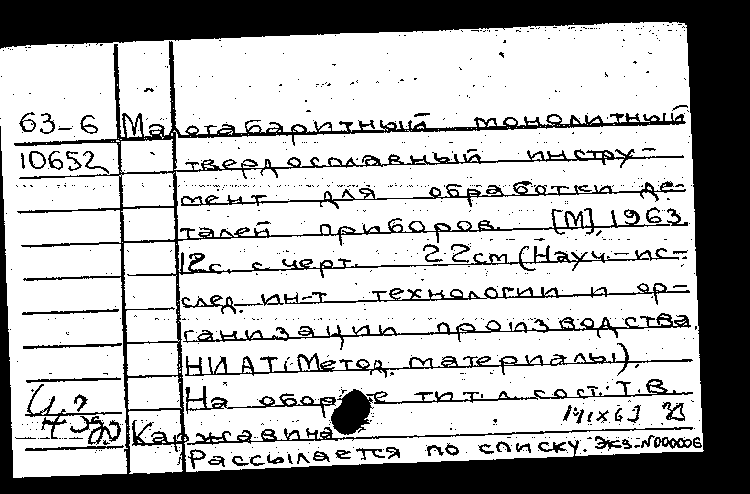 63-6 Малогабаритный монолитный
10652 твердосплавный инстру-
мент для обработки де-
талей приборов. [М], 1963.
12с. с черт. 22cm (Науч.-ис-
след. ин-т технологии и ор-
ганизации производства
НИАТ. Метод. материалы).
На обороте тит. л. сост.: Т.В.
Каржавина
Рассылается по списку. Экз. N000006